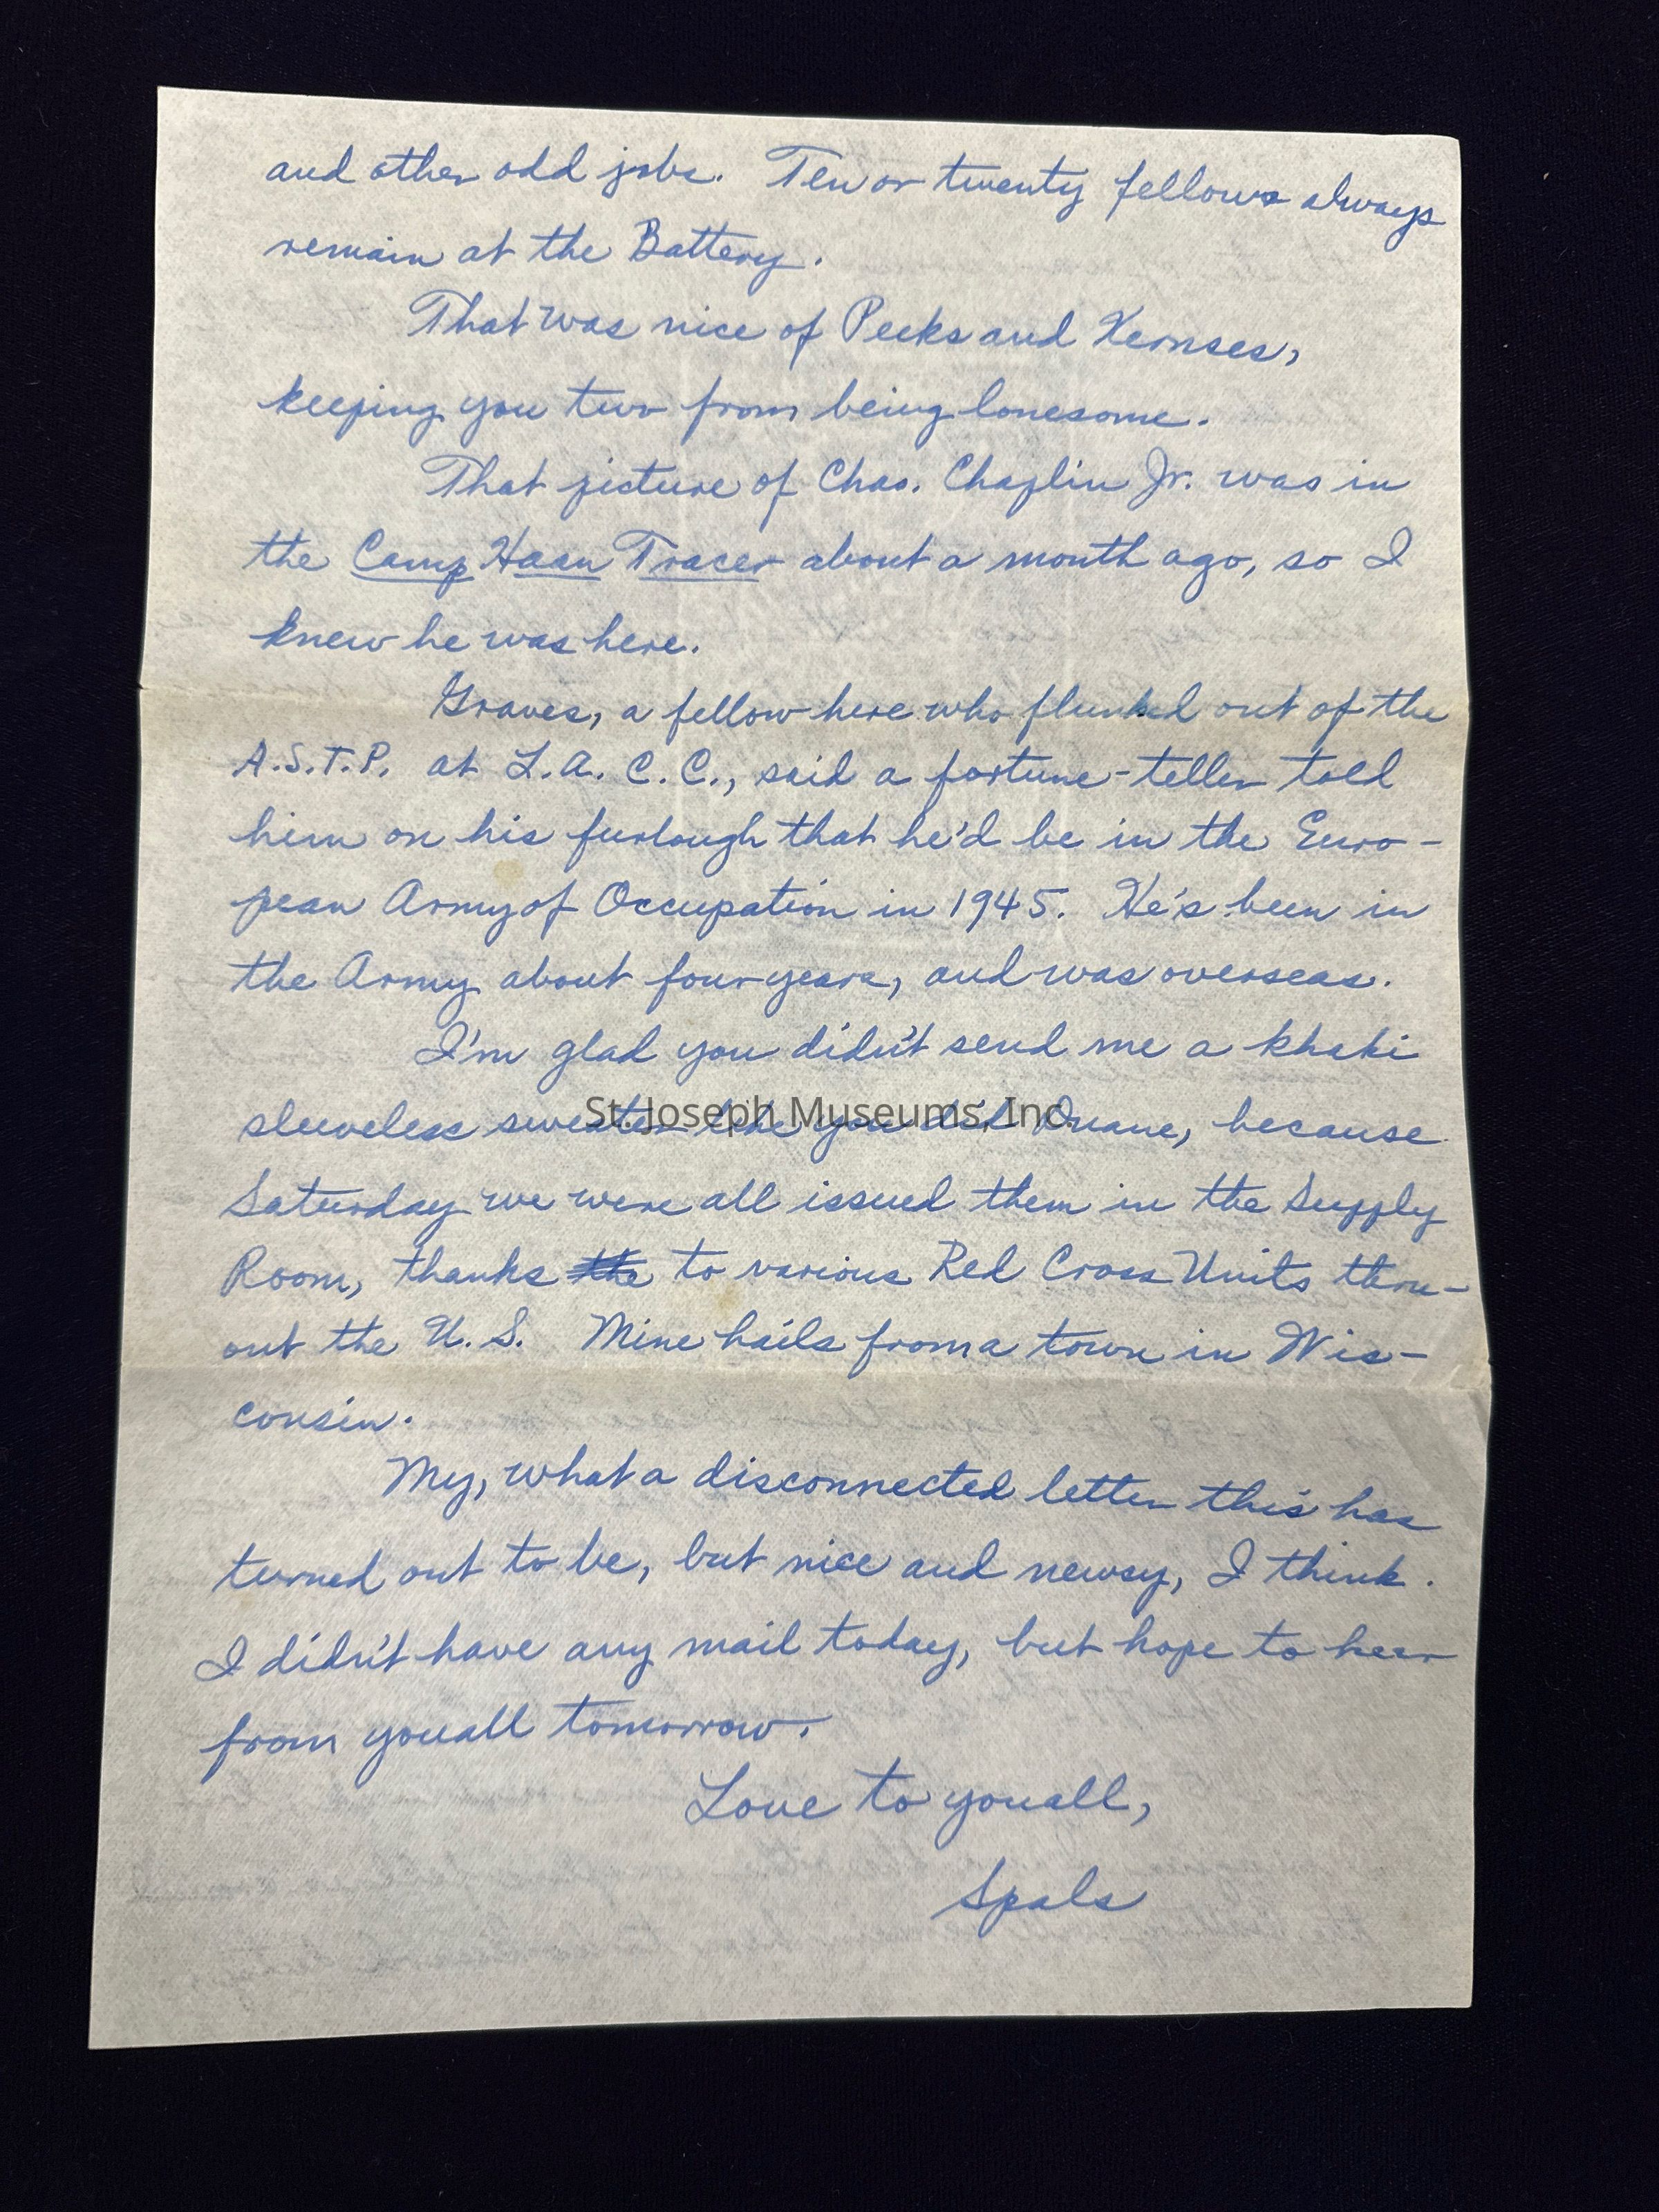 and other odd jobs. Ten or twenty fellows always
remain at the Battery.
That was nice of Peeks and Kernses,
keeping you two from being lonesome.
That picture of Chas. Chaplin Jr. was in
the Camp Haan Tracer about a month ago, so I
knew he was here.
Graves, a fellow here who flunked out of the
A.S.T.P. at L.A. C.C., said a fortune-teller told
him on his furlough that he'd be in the Euro-
pean Army of Occupation in 1945. He's been in
the Army about four years, and was overseas.
I'm glad you didn't send me a khaki
St. Joseph Museums, Inc.
sleeveless sweater like you did Duane, because
Saturday we were all issued them in the Supply
Room, thanks the to various Red Cross Units thru-
out the U.S. Mine hails from a town in Wis-
consin.
My, what a disconnected letter this has
turned out to be, but nice and newsy, I think.
I didn't have any mail today, but hope to hear
from youall tomorrow.
Love to youall,
Spals